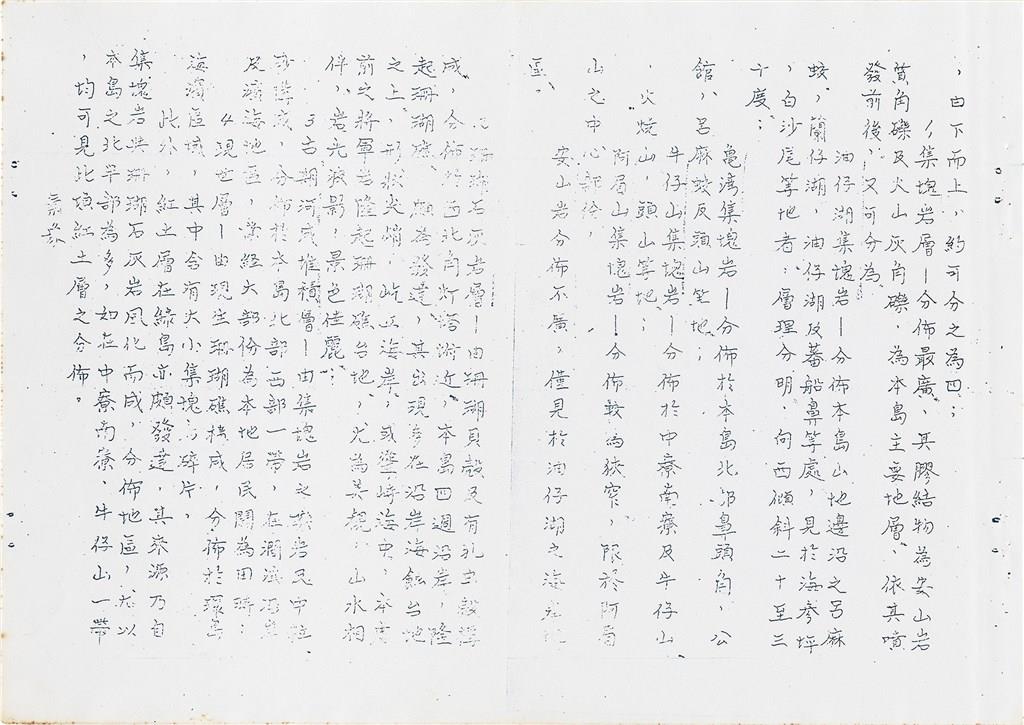 ，自下而上，約可分之為四；
1，集塊岩層—分佈最廣、其膠結物為安山岩
質角礫及火山灰角礫，為本島主要地層、依其噴
發前後，又可分為
油仔湖集塊岩—分佈本島山地邊沿之呂麻
蛟，蘭仔湖，油仔湖及蕃船鼻等處，見於海參坪
，白沙尾等地者；層理分明，向西傾斜二十至三
十度；
龜灣集塊岩—分佈於本島北部鼻頭角，公
館，呂麻蛟及頭山等地；
牛仔山集塊岩—分佈於中寮南寮及牛仔山
，火燒山，頭山等地；
阿眉山集塊岩—分佈較為狹窄，限於阿眉
山之中心部份，
安山岩分佈不廣，僅見於油仔湖之海岩地
區、
2珊瑚石灰岩層—由珊瑚貝殼及有孔虫殼
成，分佈於西北角灯塔附近，本島四週沿岸，隆
起珊瑚礁頗為發達，其出現多在沿岸海蝕台地
之上，形狀尖峭，屹立海岸，或聳峙海中，本
前之將軍岩隆起珊瑚礁台地，尤為美觀，山水相
伴，岩光狼影，景色佳麗；
3古期河成堆積層—由集塊岩之
成，分佈於本島北部西部一帶，在
及濱海地區，業經大部份為本地居民闢為田疇；
4現世層—由現生珊瑚礁構成，分佈於環島
海濱區域，其中含有大小集塊岩碎片，
此外，紅土層在綠島亦頗發達，其來源乃自
集塊岩與珊瑚石灰岩風化而成，分佈地區，尤以
本島之北半部為多，如在中寮南寮、牛仔山一帶
，均可見此項紅土層之分佈。